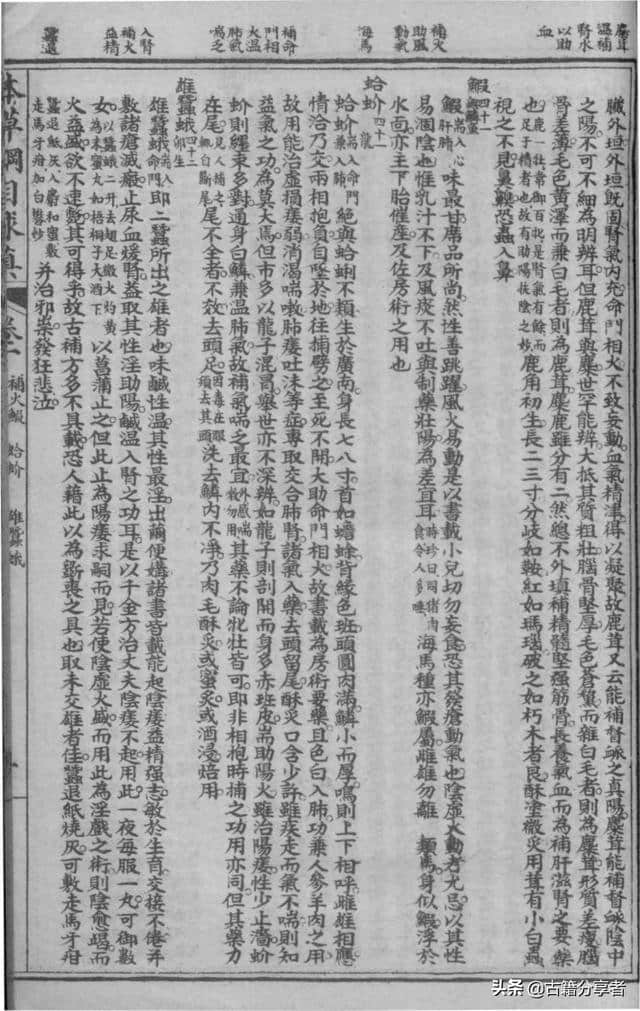 鹿茸
溫補
腎水
以助
血
補火
助風
動氣
海馬
補命
門相
火溫
肺氣
喘乏
入腎
補火
益精
蠶退
臟外垣外垣既固腎氣內充命門相火不致妄動血氣精津得以凝聚故鹿茸又云能補督脉之真陽麋茸能補督脉陰中
之陽不可不細為明辨耳但鹿茸與麋世罕能辨大抵其質粗壯腦骨堅厚毛色蒼黧而雜白毛者則為麋茸形質差瘦腦
骨差薄毛色黃澤而兼白毛者則為鹿茸麋鹿雖分有二然總不外填補精髓堅强筋骨長養氣血而為補肝滋腎之要藥
也鹿一牡常御百牝是腎氣有餘而足于精者也故有助陽扶陰之妙鹿角初生長二三寸分歧如鞍紅如瑪瑙破之如朽木者良酥塗微炙用茸有小白蟲
視之不見鼻齅恐蟲入鼻
蝦四十一
蝦耑入心肝肺味最甘席品所尚然性善跳躍風火易動是以書載小兒切勿妄食恐其發瘡動氣也陰虛火動者尤忌以其性
易涸陰也惟乳汁不下及風痰不吐與制藥壯陽為差宜耳時珍曰同猪肉食令人多唾海馬種亦蝦屬雌雄勿離 類馬身似蝦浮於
水面亦主下胎催產及佐房術之用也
蛤蚧四十二 龍
蛤蚧耑入命門兼入肺絕與蛤蜊不類生於廣南身長七八寸首如蟾蜍背綠色斑頭圓肉滿鱗小而厚鳴則上下相呼雌雄相應
情洽乃交兩相抱負自墜於地往捕劈之至死不開大助命門相火故書載為房術要藥且色白入肺功兼人參羊肉之用
故用能治虛損痿弱消渴喘嗽肺痿吐沫等症專取交合肺腎諸氣入藥去頭留尾酥炙口含少許雖疾走而氣不喘則知
益氣之功為莫大焉但市多以龍子混冒舉世亦不深辨如龍子則剖開而身多赤斑皮耑助陽火雖治陽痿性少止濇蚧
蚧則纏束多對通身白鱗兼溫肺氣故補氣喘乏最宜外感喘嗽勿用其藥不論牝壯皆可即非相抱時捕之功用亦同但其藥力
在尾見人捕之輒自嚙斷尾尾不全者不效去頭足因毒在眼須去其頭洗去鱗內不淨乃肉毛酥炙或蜜炙或酒浸焙用
雄蠶蛾四十三 卵生
雄蠶蛾耑入命門即二蠶所出之雄者也味鹹性溫其性最淫出繭便媾諸書皆載能起陰痿益精强志敏於生育交接不倦并
敷諸瘡滅瘢止尿血煖腎葢取其性淫助陽鹹溫入腎之功耳是以千金方治丈夫陰痿不起用此一夜每服一丸可御數
女以蠶蛾二升去翅足微火炒黃為末蜜丸如梧桐子大酒下以菖蒲止之但此止為陽痿求嗣而見若使陰虛火盛而用此為淫戲之術則陰愈竭而
火益盛欲不速斃其可得乎故古補方多不具載恐人藉此以為斲喪之具也取未交雄者佳蠶退紙燒灰可敷走馬牙疳
蠶退紙灰入麝和蜜敷走馬牙疳加白礬妙并治邪祟發狂悲泣
本草綱目求真
卷一 補火蝦 蛤蚧 雄蠶蛾
头条 @古籍分享者